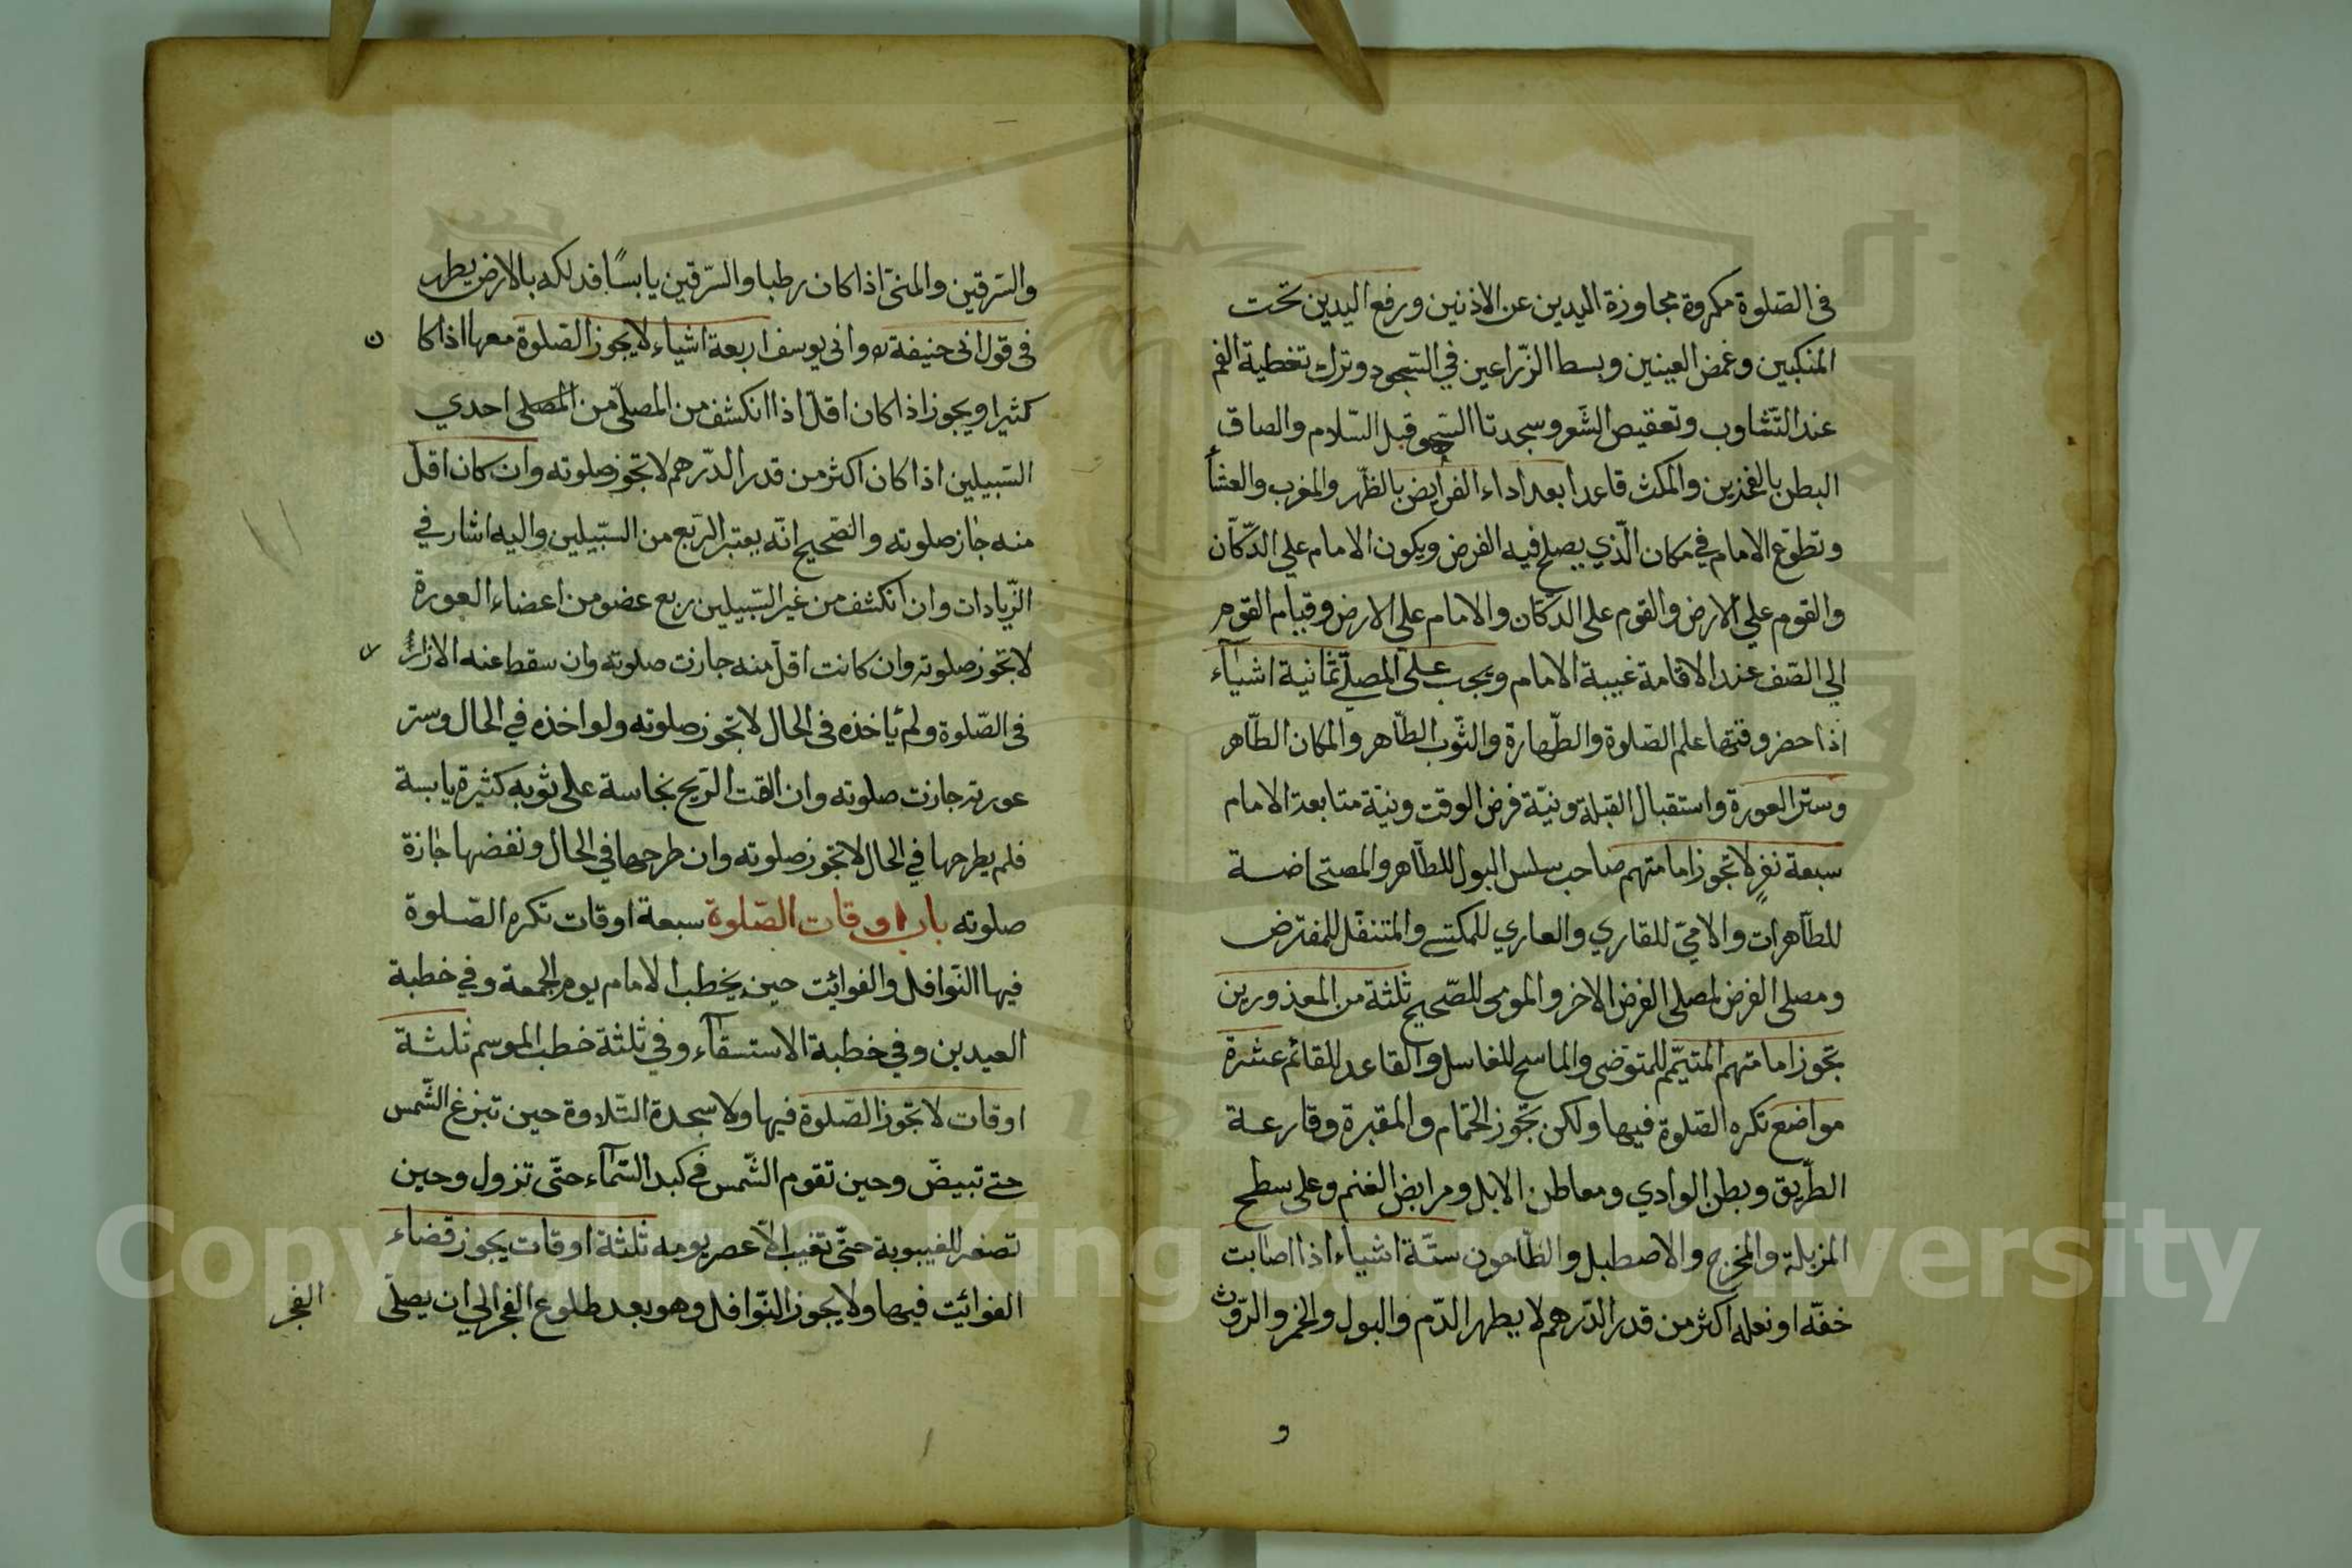 في الصّلوة مكروة مجاوزة اليدين عن الاذنين ورفع اليدين تحت
المنكبين وغمض العينين وبسط الزّراعين في السّجود وترك تغطية الفم
عند التّثاوب وتعقيص الشّعر وسجدتا السّهو قبل السّلام والصاق
البطن بالفخذين والمكث قاعدا بعد اداء الفرايض بالظّهر والمغرب والعشآ
وتطوّع الامام في مكان الّذي يصلّي فيه الفرض ويكون الامام علي الدّكّان
والقوم علي الارض والقوم على الدكّان والامام علي الارض وقيام القوم
الي الصّف عند الاقامة غيبة الامام ويجب على المصلّي ثمانية اشيآء
اذا حضر وقتها علم الصّلوة والطّهارة والثّوب الطّاهر والمكان الطّاهر
وستر العورة واستقبال القبلة ونيّة فرض الوقت ونيّة متابعة الامام
سبعة نفر لا تجوز امامتهم صاحب سلس البول للطّاهر والمستحاضة
للطّاهرات والامّيّ للقاري والعاري للمكتسي والمتنفّل للمفترض
ومصلى الفرض لمصلى الفرض الاخر والمومى للصّحيح ثلثة من المعذورين
تجوز امامتهم المتيمّم للمتوضى والماسح للغاسل والقاعد للقائم عشرة
مواضع تكره الصّلوة فيها ولكن تجوز الحمّام والمقبرة وقارعة
الطّريق وبطن الوادي ومعاطن الابل ومرابض الغنم وعلى سطح
المزبلة والمخرج والاصطبل والطّاحون ستّة اشياء اذا اصابت
خفّه او نعله اكثر من قدر الدّرهم لا يطهر الدّم والبول والخمر والرّوث
و
والسّرقين والمنيّ اذا كان رطبا والسّرقين يابسًا فدلكه بالارض يطهر
في قول ابى حنيفة ره وابى يوسف اربعة اشياء لا يجوز الصّلوة معها اذا كا ن
كثيرا ويجوز اذا كان اقلّ اذا انكشف من المصلّي من المصلى احدي
السّبيلين اذا كان اكثر من قدر الدّرهم لا تجوز صلوته وان كان اقلّ
منه جاز صلوته والصّحيح انّه يعتبر الرّبع من السّبيلين واليه اشار في
الزّيادات وان انكشف من غير السّبيلين ربع عضو من اعضاء العورة
لا تجوز صلوته وان كانت اقلّ منه جازت صلوته وان سقط عنه الازار
في الصّلوة ولم ياخذه فى الحال لا تجوز صلوته ولو اخذه في الحال وستر
عورته جازت صلوته وان القت الرّيح نجاسة على ثوبه كثيرة يابسة
فلم يطرحها في الحال لا تجوز صلوته وان طرحها في الحال ونفضها جازة
صلوته باب اوقات الصّلوة سبعة اوقات تكره الصّلوة
فيها النّوافل والفوائت حين يخطب الامام يوم الجمعة وفي خطبة
العيدين وفي خطبة الاستسقآء وفي ثلثة خطب الموسم ثلثة
اوقات لا تجوز الصّلوة فيها ولا سجدة التّلاوة حين تبزغ الشّمس
حتي تبيضّ وحين تقوم الشّمس في كبد السّمآء حتّى تزول وحين
تصفر للغيبوبة حتّى تغيب الّا عصر يومه ثلثة اوقات يجوز قضاء
الفوائت فيها ولا يجوز النّوافل وهو بعد طلوع الفجر الي ان يصلّى
الفجر
Copyright © King Saud University